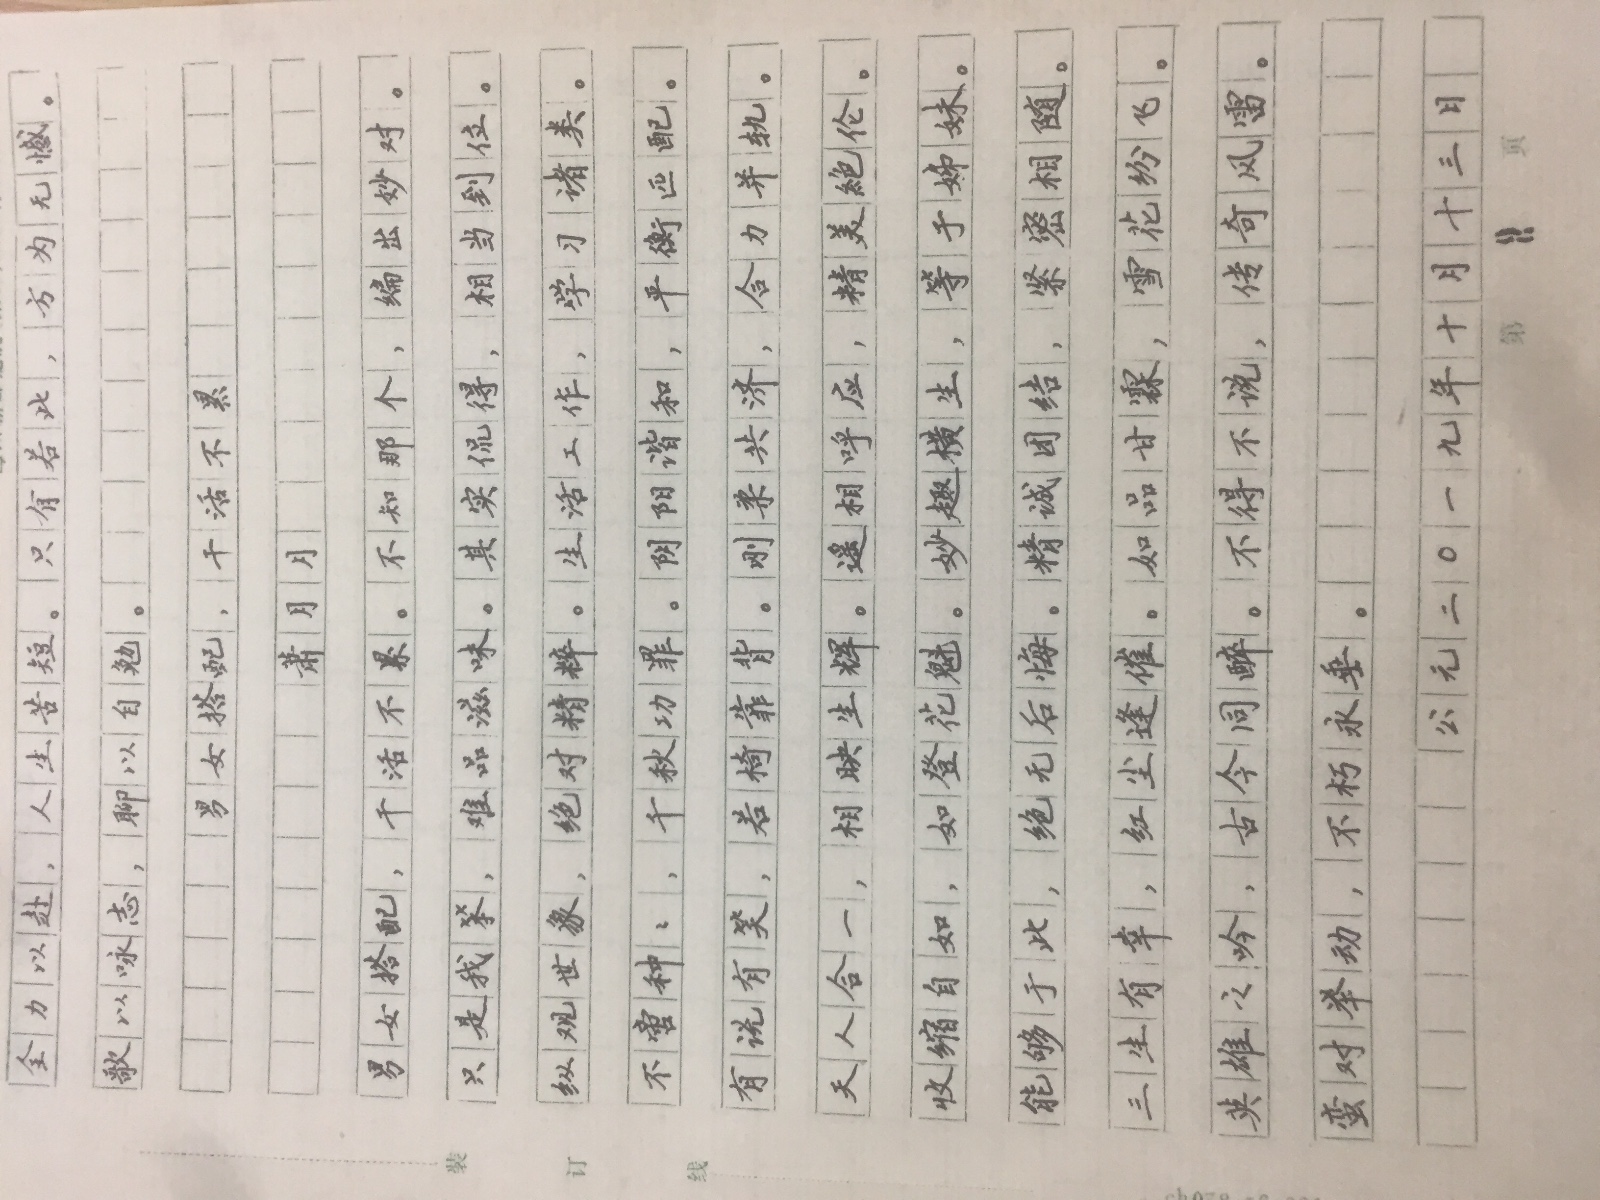 全力以赴，人生苦短。只有若此，方为无憾。
歌以咏志，聊以自勉。
男女搭配，干活不累
萧月月
男女搭配，干活不累。不知那个，编出妙对。
只是我拏，难品滋味。其实侃得，相当到位。
纵观世象，绝对精粹。生活工作，学习诸类。
不啻种〻，千秋功罪。阴阳谐和，平衡匹配。
有说有笑，若椅靠背。刚柔共济，合力并轨。
天人合一，相映生辉。遥相呼应，精美绝伦。
收缩自如，如登花魁。妙趣横生，等于姊妹。
能够于此，绝无后悔。精诚团结，紧密相随。
三生有幸，红尘逢催。如品甘霖，雪花纷飞。
英雄之吟，古今同醉。不得不说，传奇风雷。
蛮对举动，不朽永垂。
公元二〇一九年十月十三日
第 12 页
装订线